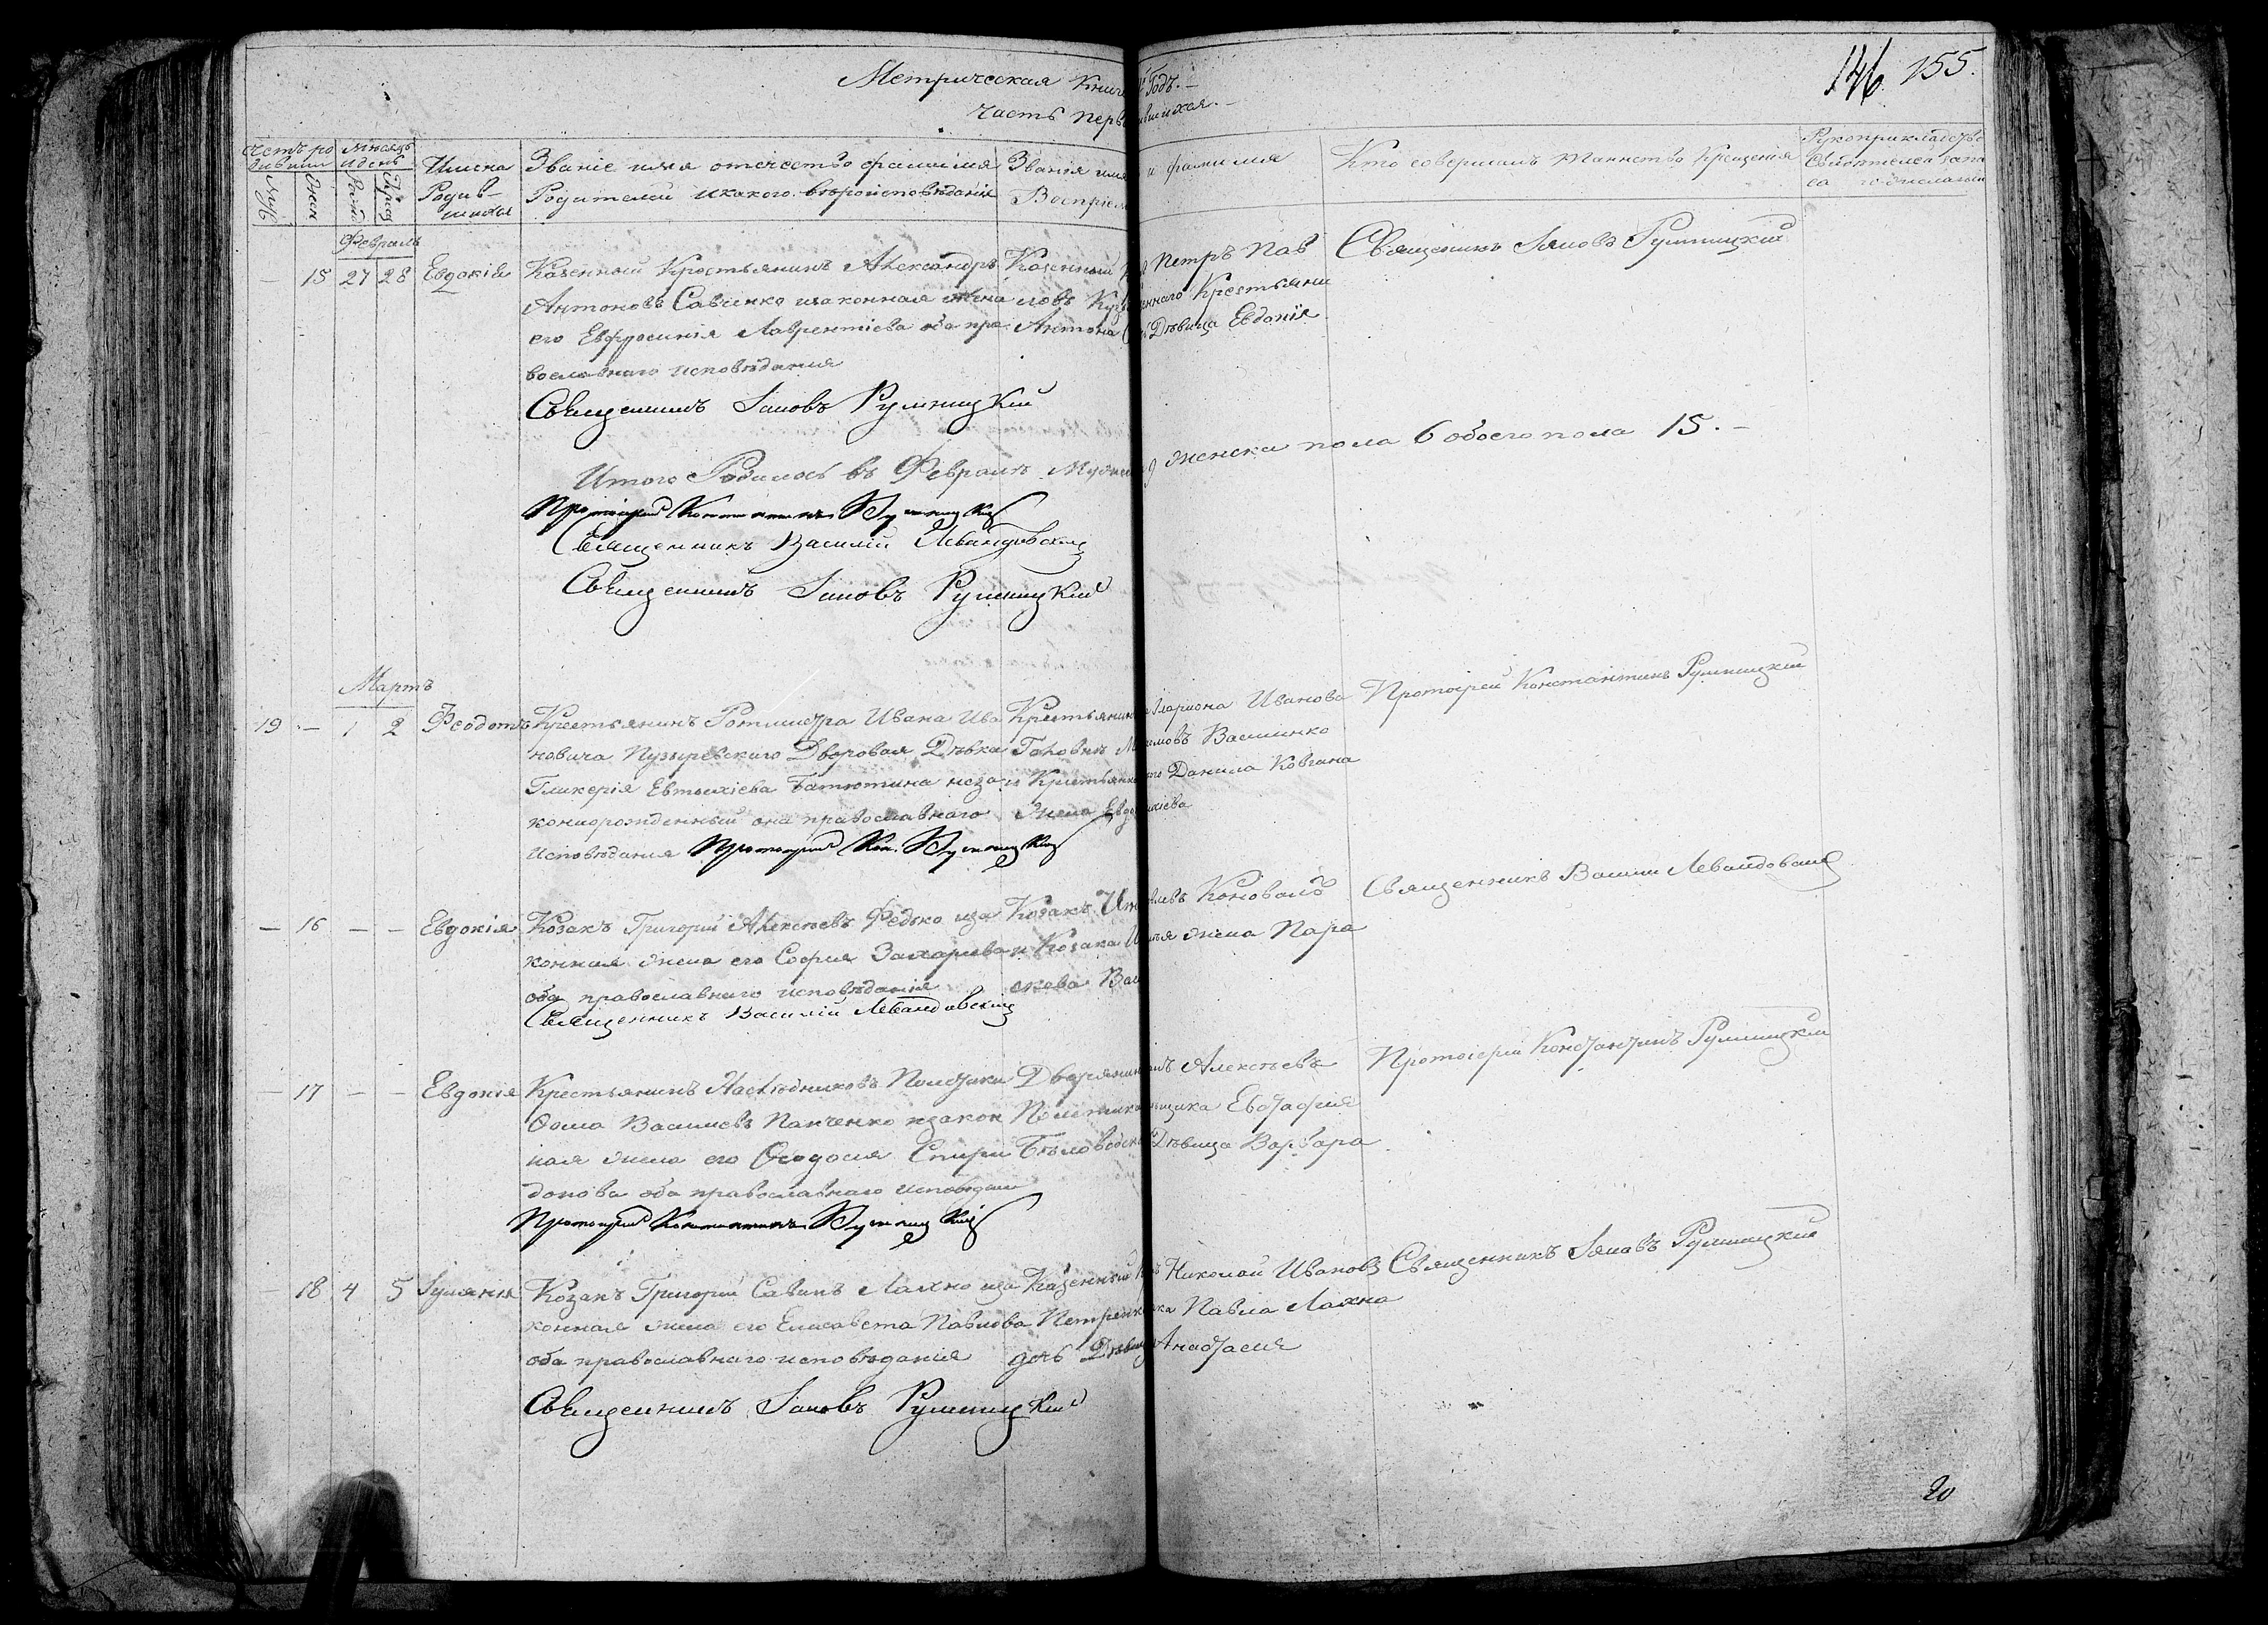 146 155.
Метрическая Книг Годъ.
Часть перв
Счетъ ро дившим
Мѣсяцъ и день
Муж
Жен
Рожд
Крещ
Имена Родив- шихся
Званіе имя отечество фамилія
Родителей и какого вѣроисповѣданія
Званія имя и фамилия
Воспріем
Кто совершалъ таинство Крещенія
Рукоприкладство
Свидѣтелей запи
са
Февраль
— 15 27 28 Евдокія
Казенный Крестьянинъ Александръ
Антоновъ Савченко изаконная жена
его Евфросинія Лаврентіева оба пра
вославнаго исповѣданія
Казенный Петръ Пав
ловъ Куз еннаго Крестьяни
Антона Дѣвица Евдокія
Священникъ Іаковъ Румницкій
Священникъ Іаковъ Румницкій
Итого Родилось въ Февралѣ Мужеск 9 женска пола 6 обоего пола 15. —
Протоіерей Константинъ Румницкій
Священникъ Василій Левандовскій
Священникъ Іаковъ Румницкій
Мартъ
19 — 1 2 Феодотъ
Крестьянинъ Ротмистра Ивана Ива
новича Пузыревскаго Дворовая Дѣвка
Гликерія Евтихіева Батютина неза
коннорожденный она православнаго
исповѣдания Протоіерей Кон. Румницкій
Крестьянин Лариона Иванова
мовъ Василенко
и Крестьянк Данила Ковгана
жена Евдо
Протоіерей Константинъ Румницкій
— 16 — — Евдокія
Козакъ Григорій Алексѣевъ Федько иза
конная жена его Софія Захарьева
оба православнаго исповѣданія
Священникъ Василій Левандовскій
Козакъ Коновалъ
и Козака жена Пара
скева Вас
Священникъ Василій Левандовскій
— 17 — — Евдокія
Крестьянинъ Наслѣдниковъ Полетики
Фома Васильевъ Панченко изакон
ная жена его Феодосія Спири
донова оба православнаго исповѣдані
Протоіерей Константинъ Румницкій
Дворянин Алексѣевъ
Полетика щика Евстафія
Бѣловодск Дѣвица Варвара
Протоіерей Константинъ Румницкій
— 18 4 5 Іуліанія
Козакъ Григорій Савинъ Лахно иза
конная жена его Елисавета Павлова
оба православнаго исповѣданія
Священникъ Іаковъ Румницкій
Казенный Николай Ивановъ
Петренк Павла Лахна
дочь Дѣвица Анастасія
Священникъ Іаковъ Румницкій
20